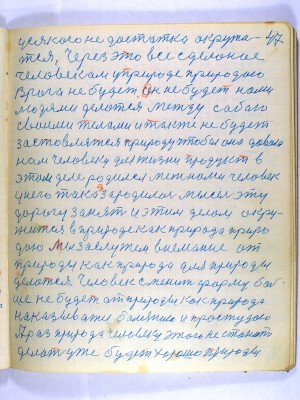 усякого не достатка окружа- 47
тся, Через это все сделоное
человекам уприроде природою
врага не будет. Он не будет нами
людями делотся между сабою
своими телами и такте не будет
застовлятся природу чтобы она довала
нам человеку для жизни продукт в
этом деле родился меж нами человек
у него така зародилася мысля эту
дорогу занят и этим делом окру-
жится в природе как природа приро
дою Мы заслужем внемание от
природы как природа для природы
делотся Человек сменит форму бол-
ше не будет от природы как природа
наказывати болезнию и простудою
А раз природа человеку этого не станит
делат уже будет хорошо природы